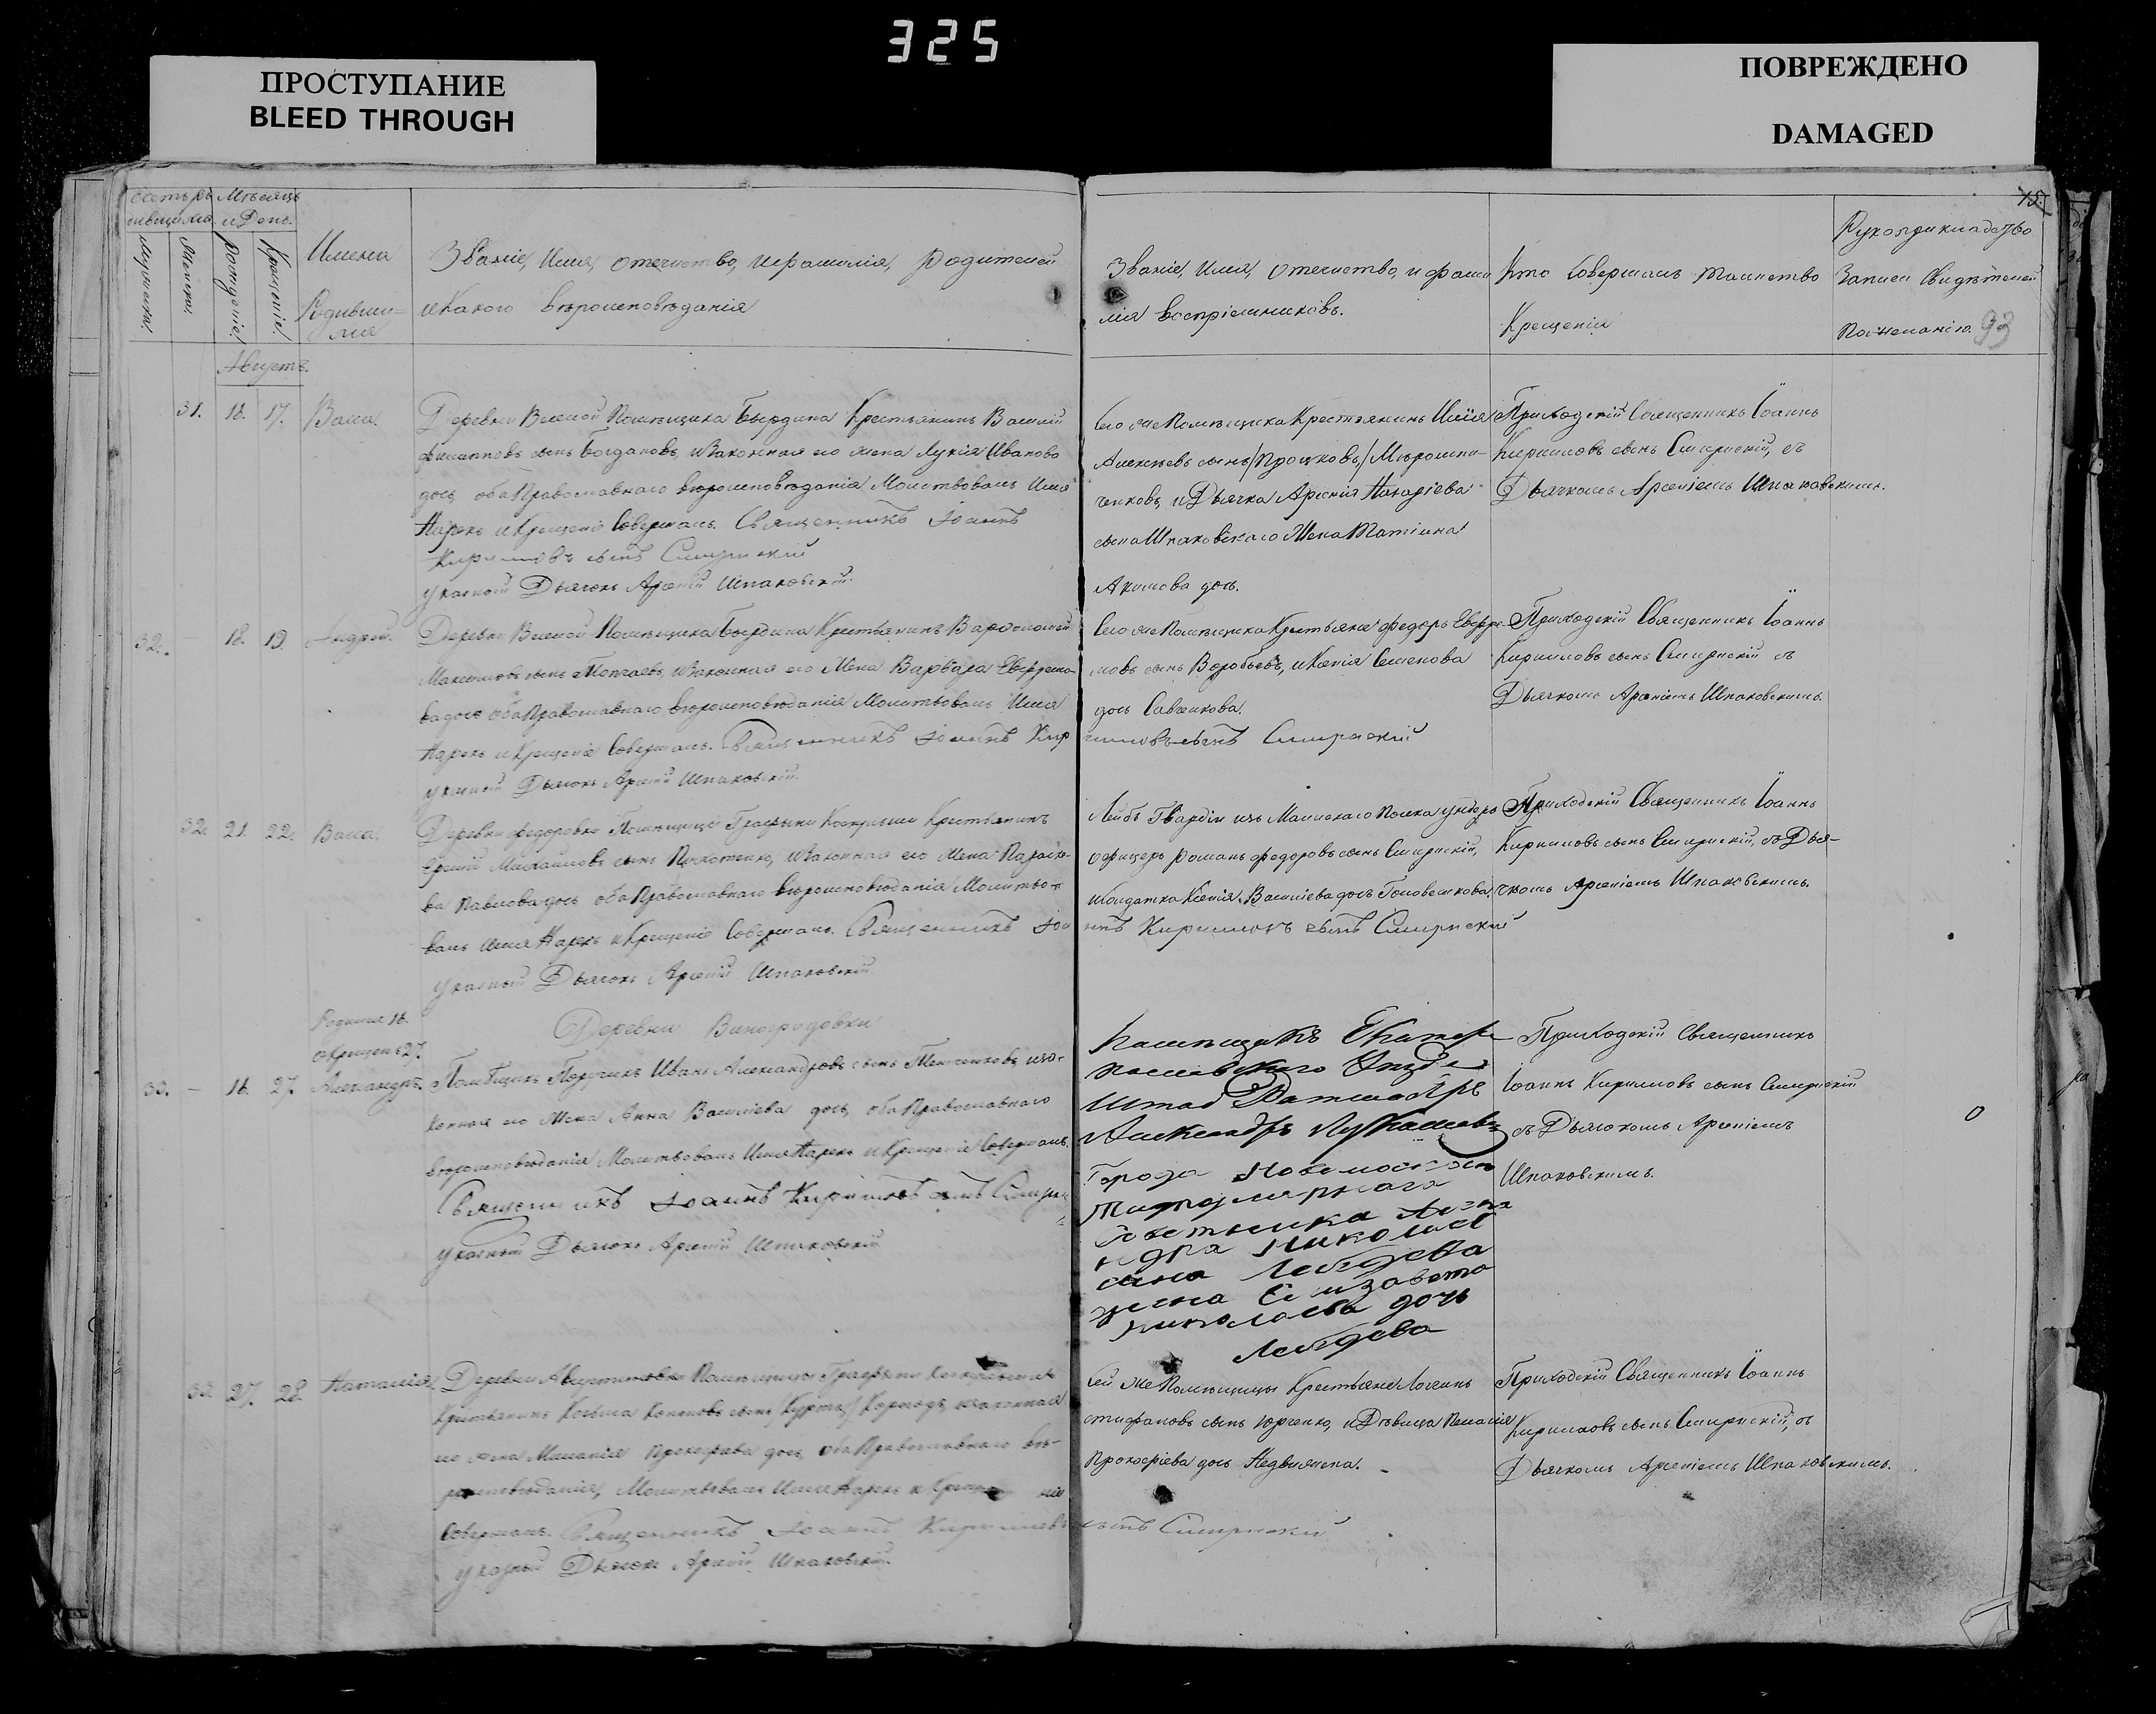 325
ПРОСТУПАНИЕ
BLEED THROUGH
ПОВРЕЖДЕНО
DAMAGED
15.
93
Мѣсяцъ
и День.
Мужеска.
Женска.
Рожденіе.
Крещеніе.
Имена
Родивши=
хся
Званіе, Имя, отечество, и фамилія, родителей
и Какого вѣроисповѣданія
Званіе, Имя, отечество, и фами
лія воспріемниковъ.
Кто Совершалъ таинство
Крещенія
Рукоприкладство
Записи Свидѣтелей
по желанію.
Августъ.
31. 16. 17. Васса.
Деревни Помѣщика Крестьянинъ Василій
Филипповъ сынъ Богдановъ, и Законная его жена Лукія Иванова
дочь, оба Православнаго вѣроисповѣданія Молитвовалъ Имя
Нарекъ и Крещеніе Совершалъ. Священникъ Іоаннъ
Кириловъ сынъ Смирнскій
указный Дьячокъ Арсеній Шпаковскій.
Его же Помѣщика Крестьянинъ
Алексѣевъ сынъ
и Дьячка Арсенія
сына Шпаковскаго Жена Татіана
Акимова дочь.
Приходскій Священникъ Іоаннъ
Кириловъ сынъ Смирнскій, съ
Дьячкомъ Арсеніемъ Шпаковскимъ.
32. — 18. 19. Андрей.
Деревни Помѣщика Крестьянинъ Варфоломей
Максимовъ сынъ и Законная его Жена Варвара
дочь оба Православнаго вѣроисповѣданія Молитвовалъ Имя
Нарекъ и Крещеніе Совершалъ. Священникъ Іоаннъ Кир
указный Дьячокъ Арсеній Шпаковскій.
Его же Помѣщика Крестьяне Федоръ
сынъ Воробьевъ, и Ксенія Семенова
дочь Савенкова.
иловъ сынъ Смирнскій
Приходскій Священникъ Іоаннъ
Кириловъ сынъ Смирнскій съ
Дьячкомъ Арсеніемъ Шпаковскимъ.
32. 21. 22. Васса.
Деревни Федоровки Помѣщицы Графыни Крестьянинъ
Михайловъ сынъ и Законная его Жена Параске-
ва Павлова дочь оба Православнаго вѣроисповѣданія Молитво-
валъ имя Нарекъ и Крещеніе Совершалъ. Священникъ Іоа
указный Дьячокъ Арсеній Шпаковскій.
Лейбъ Гвардіи Полка унтеръ
офицеръ Романъ Федоровъ сынъ Смирнскій,
и солдатка Ксенія Василіева дочь
ннъ Кириловъ сынъ Смирнскій
Приходскій Священникъ Іоаннъ
Кириловъ сынъ Смирнскій, съ Дья-
чкомъ Арсеніемъ Шпаковскимъ.
Родился 16.
окрещенъ 27.
33. — 16. 27. Александръ.
Деревни Виноградовки
Помѣщикъ Поручикъ Иванъ Александровъ сынъ и за-
конная его Жена Анна Василіева дочь, оба Православнаго
вѣроисповѣданія Молитвовалъ Имя Нарекъ и Крещеніе Совершалъ.
Священникъ Іоаннъ Кириловъ сынъ Смирн
указный Дьячокъ Арсеній Шпаковскій
Помѣщикъ Екатери
нославскаго Уезда
Штабъ Ратмистръ
Александръ
Города
титулярнаго
Советника Алекса
ндра Николаев
сына Лебедева
жена Елизавета
Николаева дочь
Лебедева
Приходскій Священникъ
Іоаннъ Кириловъ сынъ Смирнскій
съ Дьячкомъ Арсеніемъ
Шпаковскимъ.
33. 27. 28. Наталія.
Деревни Помѣщицы Графыни
Крестьянинъ Косьма сынъ законная
его жена Меланія Прокофіева дочь, оба Православнаго вѣ-
роисповѣданія, Молитвовалъ Имя Нарекъ и Крещеніе
Совершалъ. Священникъ Іоаннъ Кириловъ
указный Дьячокъ Арсеній Шпаковскій.
Сей же Помѣщицы Крестьяне Логинъ
Стифановъ сынъ Юрченко, и Дѣвица Пелагія
Прокофіева дочь
сынъ Смирнскій
Приходскій Священникъ Іоаннъ
Кириловъ сынъ Смирнскій, съ
Дьячкомъ Арсеніемъ Шпаковскимъ.